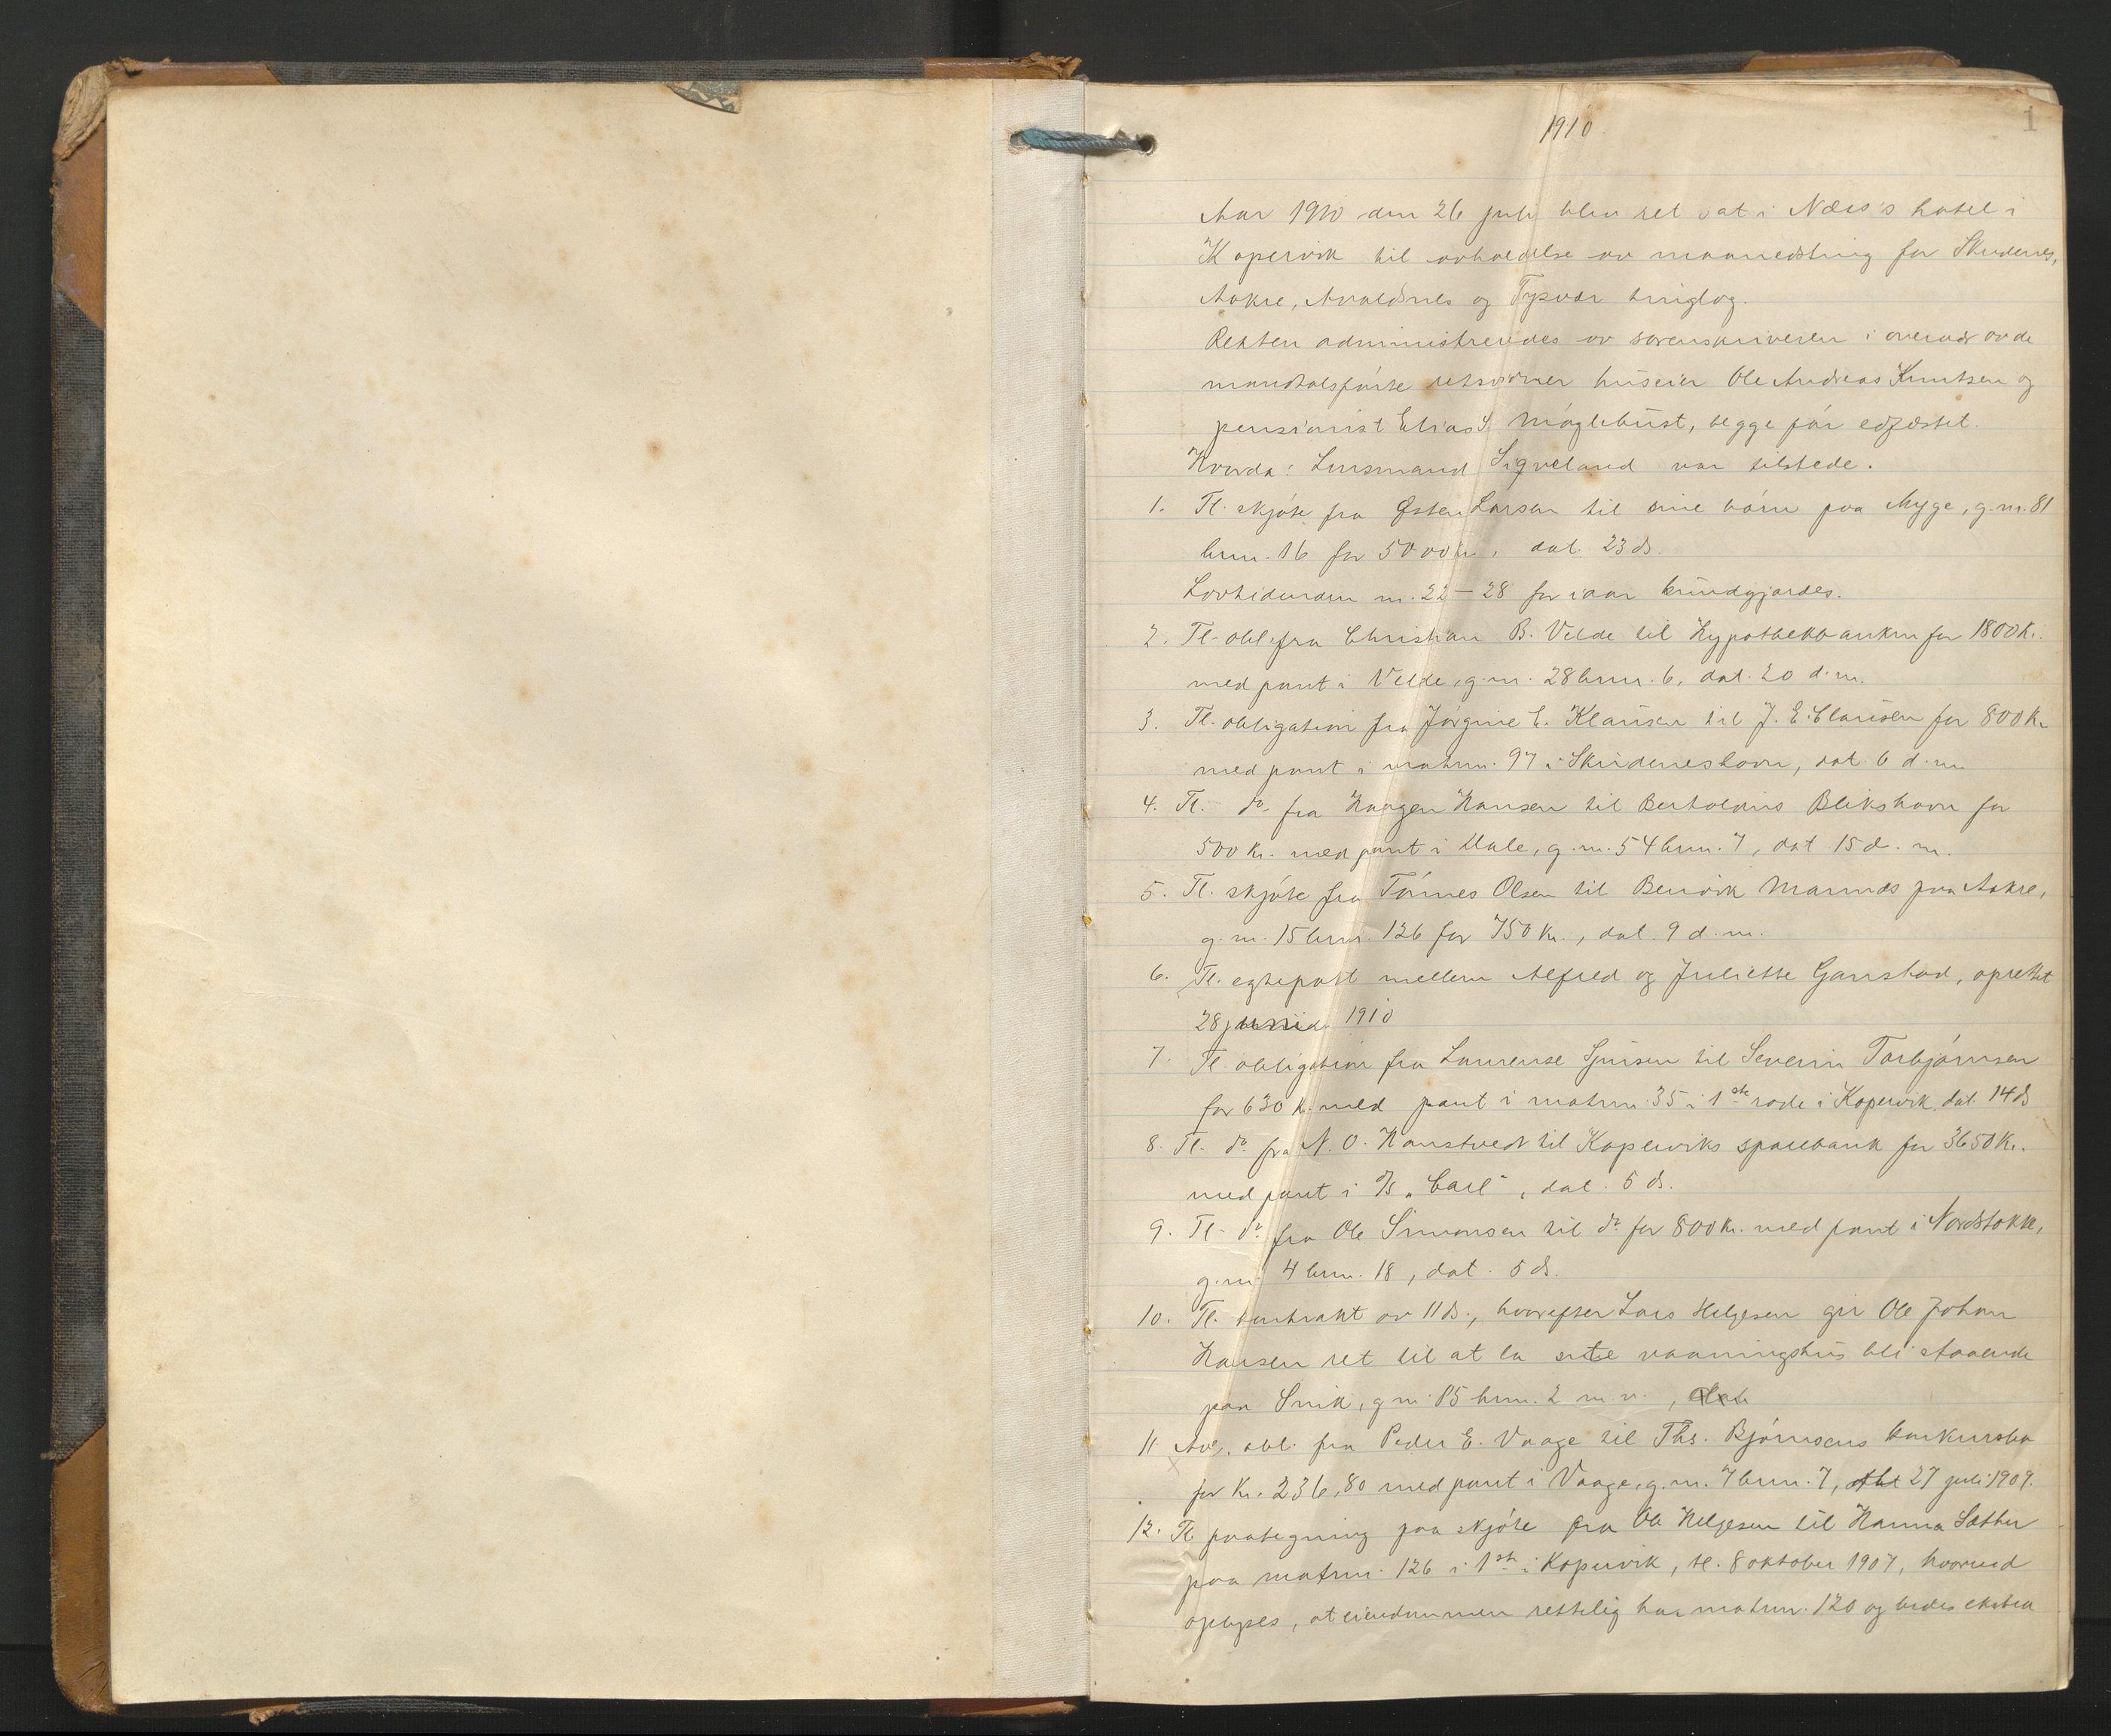 1
1910
Aar 1910 den 26 juli blev ret sat i Næss's hotel i
Kopervik til avholdelse av maanedsting for Skudenes,
Aakre, Avaldsnes og Tysvær tinglag.
Retten administrertes av sorenskriveren i overvær av de
mandtalsførte retsvidner huseier Ole Andreas Knutsen og
pensionist Elias S. Møglebust, begge før edfæstet.
Hvorda: Lensmand Sigveland var tilstede.
1. Tl. skjøte fra Østen Larsen til sine børn paa Myge, g.nr. 81
brnr. 16 for 5000 kr, dat. 23 ds.
Lovtidenden nr. 22-28 for iaar kundgjordes.
2. Tl. obl. fra Christian B. Velde til Hypothekbanken for 1800 Kr.
med pant i Velde, g.nr. 28 brnr. 6, dat. 20 d.m.
3. Tl. obligation fra Jørgine C. Klausen til J. E. Clausen for 800 Kr
med pant i matrnr. 97 i Skudeneshavn, dat. 6 d.m.
4. Tl. do fra Haagen Hansen til Bertheanus Blikshavn for
500 kr. med pant i Hale, g.nr. 54 brnr. 7, dat. 15 d.m.
5. Tl. skjøte fra Tønnes Olsen til Benvik Mannæs paa Aakre,
g.nr. 15 brnr. 126 for 750 Kr., dat. 9 d.m.
6. Tl. egtepakt mellem Alfred og Juliette Ganstad, oprettet
28 juni 1910
7. Tl. obligation fra Laurense Sjursen til Severin Torbjørnsen
for 630 k. med pant i matrnr. 35 i 1ste rode i Kopervik, dat. 14 ds
8. Tl. do fra N. O. Hanstvedt til Koperviks sparebank for 3650 Kr.
med pant i D/S "Carl", dat. 5 ds.
9. Tl. do fra Ole Simonsen til do for 800 Kr. med pant i Nordstokke,
g.nr. 4 brnr. 18, dat. 5 ds.
10. Tl. kontrakt av 11 ds., hvorefter Lars Helgesen gir Ole Johan
Hansen ret til at la sitt vaaningshus bli staaende
paa Snik, g.nr. 85 brnr. 2 m.v.,
11. Avl. obl. fra Peder E. Vaage til Ths. Bjørnsens konkursbo
for Kr. 236,80 med pant i Vaage, g.nr. 7 brnr. 7, 27 juli 1909.
12. Tl. paategning paa skjøte fra Ole Helgesen til Hanna Sæther
paa matrnr. 126 i 1ste i Kopervik, tl. 8 oktober 1907, hvorved
oplyses, at eiendommen rettelig har matrnr. 120 og bedes ekstra